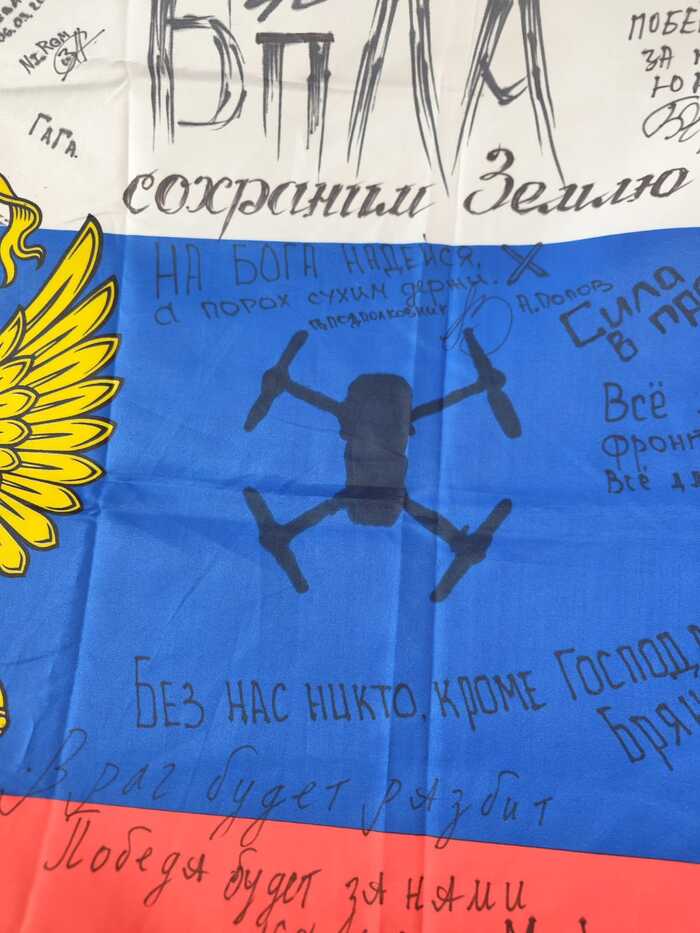 06.09.2
NiROM
ГАГА.
БпЛА
ПОБЕ
ЗА
сохраним Землю
НА БОГА НАДЕЙСЯ,
а порох сухим держи.
п/подполковник А.Попов
Сила
в пр
Всё
фронт
Всё дл
Без нас никто, кроме Господа
Брян
Враг будет разбит
Победа будет за нами